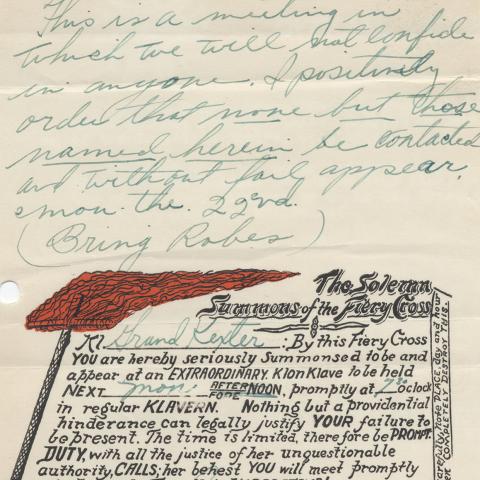 This is a meeting in
which we will not confide
in anyone. I positively
order that none but those
named herein be contacted
and without fail appear.
mon. the. 22nd.
(Bring Robes)
The Solemn
Summons of the Fiery Cross
Kl Grand Kexter : By this Fiery Cross
YOU are hereby seriously Summonsed to be and
appear at an EXTRAORDINARY KlonKlave to be held
NEXT mon: AFTERNOON, promptly at 7:30 oclock
FORE
in regular KLAVERN. Nothing but a providential
hinderance can legally justify YOUR failure to
be present. The time is limited, therefore be PROMPT.
DUTY, with all the justice of her unquestionable
authority, CALLS; her behest YOU will meet promptly
carefully, note PLACE, day and hour
COMPLETELY DESTROY THIS.